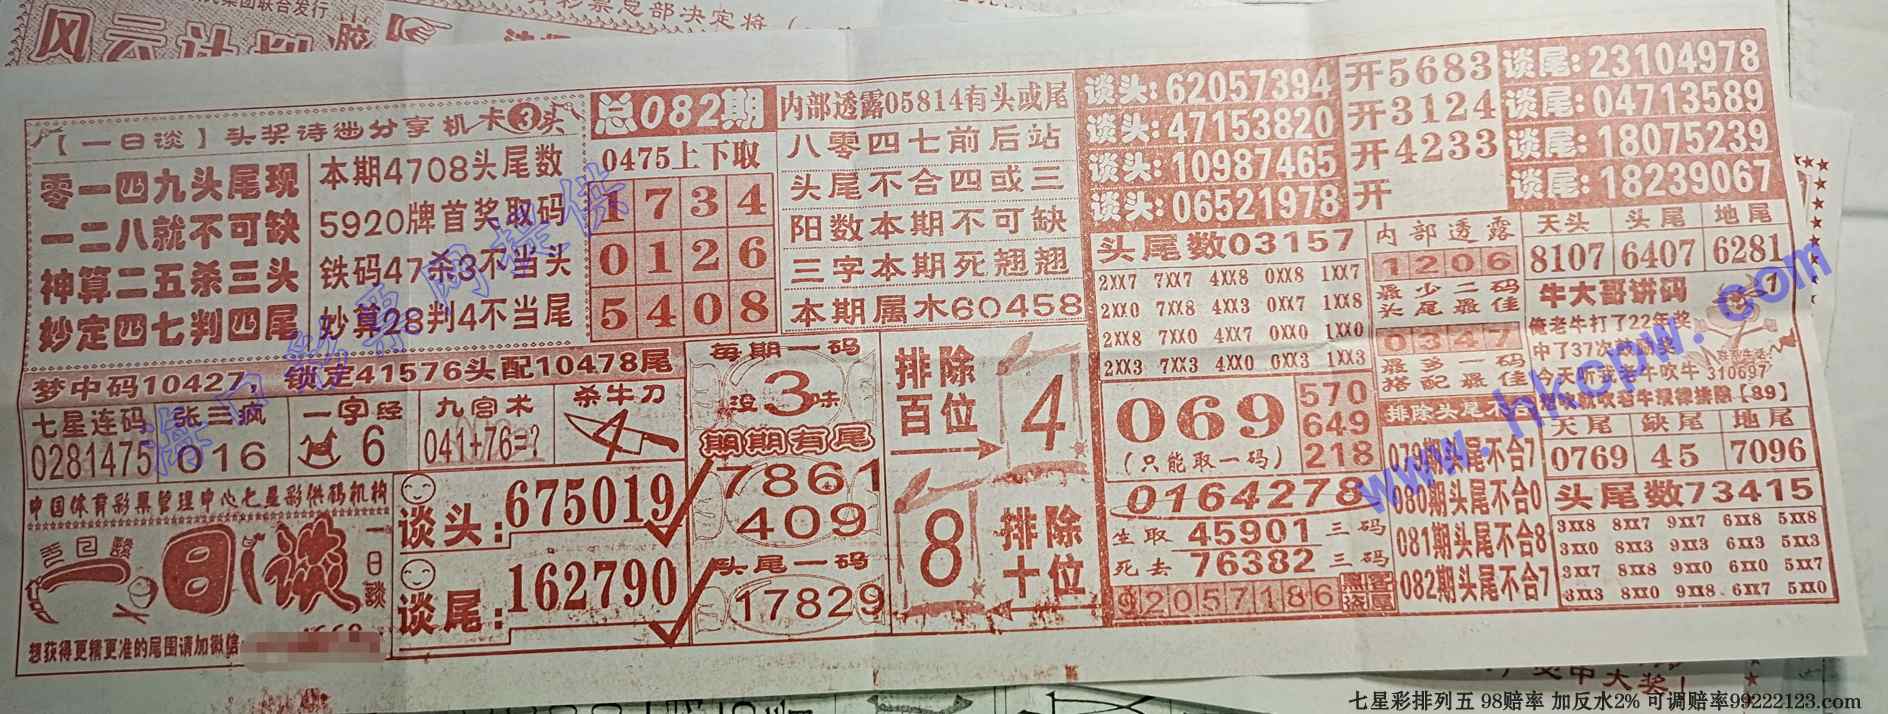 集团联合发行
彩票总部决定将
风云计划
【一日谈】头奖诗出分享机卡③头
零一四九头尾现
一二八就不可缺
神算二五杀三头
妙定四七判四尾
本期4708头尾数
5920牌首奖取码
铁码47杀3不当头
妙算28判4不当尾
总082期
0475上下取
1734
0126
5408
内部透露05814有头或尾
八零四七前后站
头尾不合四或三
阳数本期不可缺
三字本期死翘翘
本期属木60458
谈头:62057394 开5683 谈尾:23104978
谈头:47153820 开3124 谈尾:04713589
谈头:10987465 开4233 谈尾:18075239
谈头:06521978 开 谈尾:18239067
梦中码10427，锁定41576头配10478尾
七星连码
0281475
张三疯
016
一字经
6
九宫术
041+76=?
杀牛刀
4
中国体育彩票管理中心七星彩供码机构
一日谈
一日谈
想获得更精更准的尾围请加微信:
谈头:675019
谈尾:162790
每期一码
没3味
期期有尾
7861
409
头尾一码
17829
排除百位
4
8
排除十位
头尾数03157
2XX7 7XX7 4XX8 0XX8 1XX7
2XX0 7XX8 4XX3 0XX7 1XX8
2XX8 7XX0 4XX7 0XX0 1XX0
2XX3 7XX3 4XX0 0XX3 1XX3
069
(只能取一码)
570
649
218
0164278
生取45901三码
死去76382三码
92057186
内部透露
1206
最少二码
头尾最佳
0347
最多一码
搭配最佳
排除头尾不合
079期头尾不合7
080期头尾不合0
081期头尾不合8
082期头尾不合7
天头 头尾 地尾
8107 6407 6281
牛大哥讲码
俺老牛打了22年奖
中了37次鼓励奖
今天听我老牛吹牛
310697
【89】
天尾 缺尾 地尾
0769 45 7096
头尾数73415
3XX8 8XX7 9XX7 6XX8 5XX8
3XX0 8XX3 9XX3 6XX3 5XX3
3XX7 8XX8 9XX0 6XX0 5XX7
3XX3 8XX0 9XX8 6XX7 5XX0
www.hkcpw.com
七星彩排列五 98赔率 加反水2% 可调赔率99222123.com